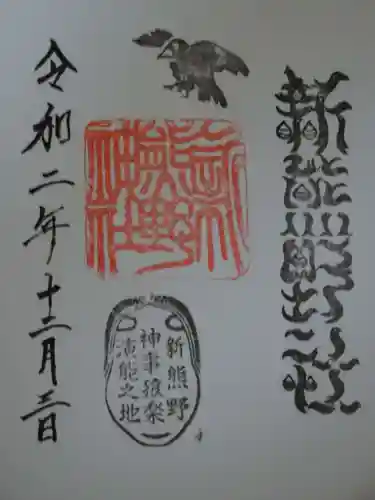 新熊野神社
新熊野神社
新熊野
神事猿楽
演能之地
令和二年十二月三日